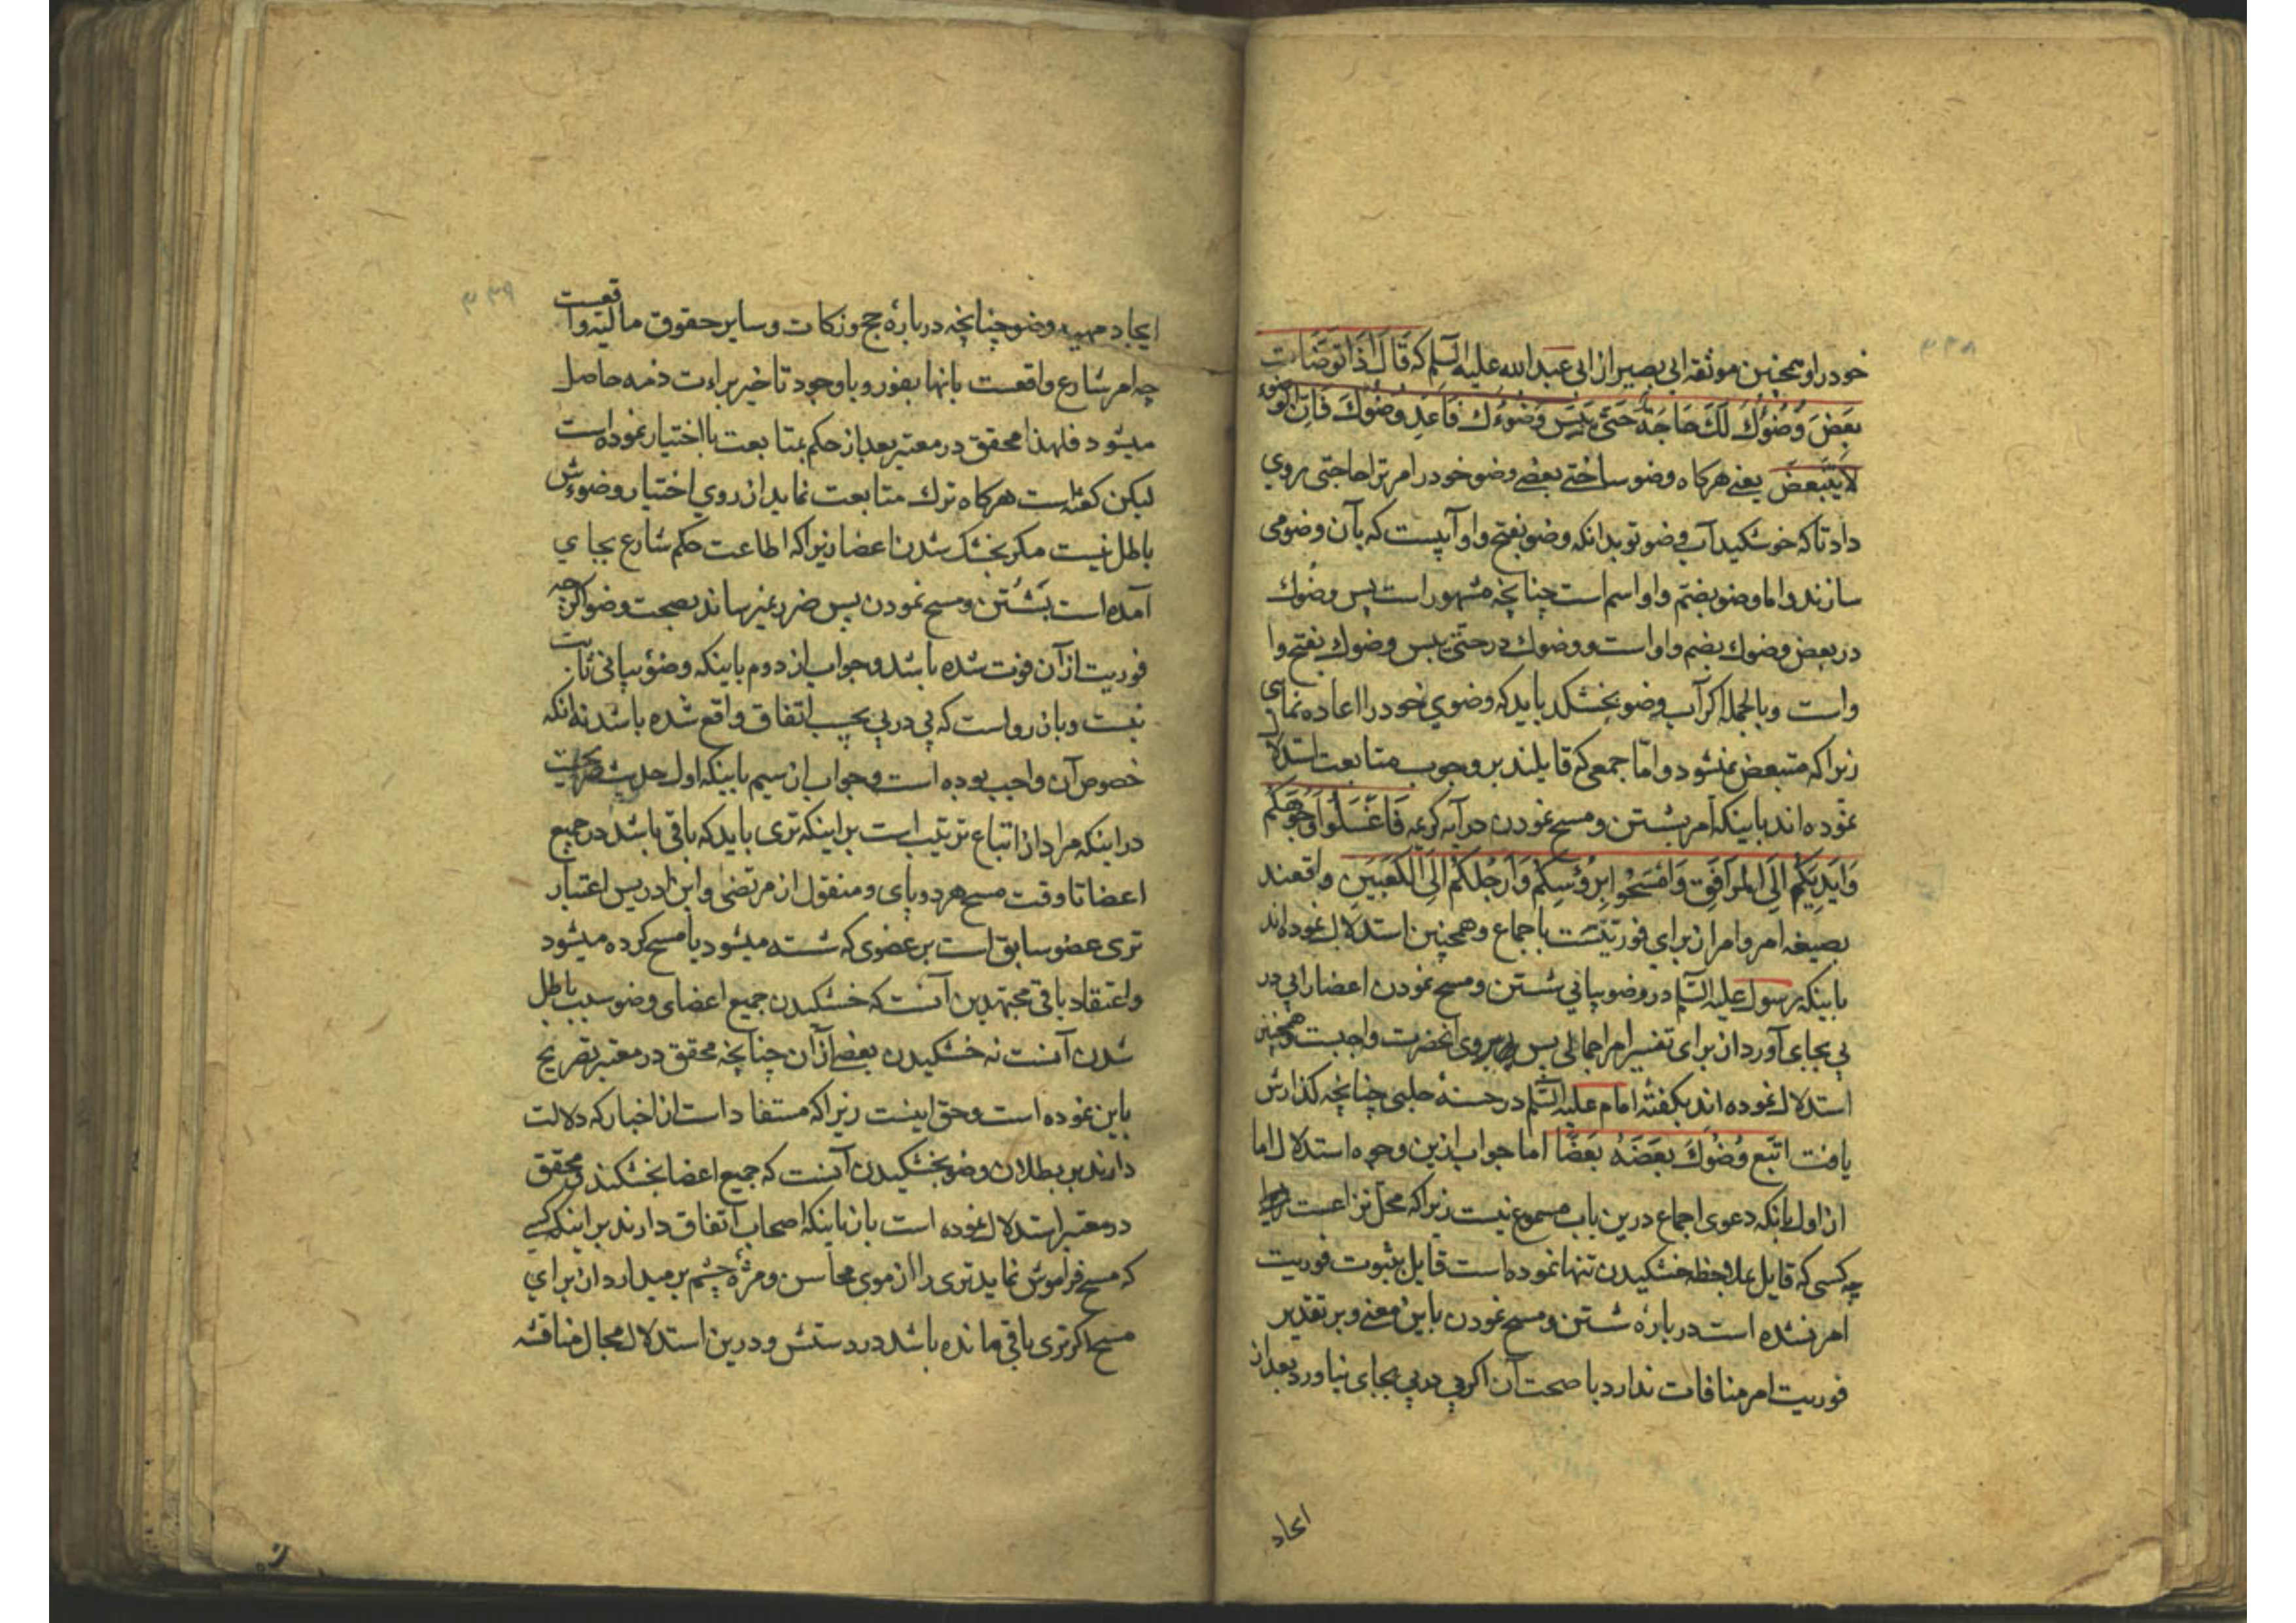 خود را و همچنین موثقه ابی بصیر از ابی عبد الله علیه السلم که قَالَ اِذَا تَوَضَّات
بَعضَ وَضُوُكَ لَكَ حَاجَةٌ حَتّی یَبِسَ وَضُوءُك فَاَعِد وُضُوكَ فَاِنَّ الوُضُوءَ
لَا یَتَبَعَّضُ یعنے هرکاه وضو ساختی بعضے وضو خود را مر ترا حاجتی روی
داد تا که خوشکید آب وضو تو بدانکه وضو بفتح واو آبیست که بآن وضو می
سازند و اما وضو بضم واو اسم است چنانچه مشهور است پس وضوك
در بعض وضوك بضم واو است و وضوك در حتی یبس وضوك بفتح وا
واست و بالجمله اکر آب وضو بخشکد باید که وضوی خود را اعاده نمای
زیرا که متبعض نمیشود و امّا جمعی که قایلند بر وجوب متابعت استدلال
نموده اند باینکه امر بشستن و مسح نمودن در آیه کریمه فَاغْسَلُوا وُجُوهَکُم
وَاَیدِیَکُم اِلَی المرَافِقِ وَامْسَحُوا بِرُؤُسِکُم وَاَرجُلَکُم اِلَی الکَعبَینِ واقعند
بصیغه امر و امر از برای فوریتست باجماع و همچنین استدلال نموده اند
باینکه رسول علیه السلم در وضو بیانی شستن و مسح نمودن اعضا را پی در
پی بجای آورد از برای تفسیر امر اجمالی پس پیروی انحضرت واجبست و همچنین
استدلال نموده اند بکفته امام علیه السلم در حسنه حلبی چنانچه کذارش
یافت اتّبع وُضُوكَ بَعضَهُ بَعضًا اما جواب ازین وجوه استدلال اما
از اول بانکه دعوی اجماع درین باب مسموع نیست زیرا که محل نزاعست
چه کسی که قایل بملاحظه خشکیدن تنها نموده است قایل بثبوت فوریت
امر نشده است در بارهٔ شستن و مسح نمودن باین معنے و بر تقدیر
فوریت امر منافات ندارد با صحت آن اکر پی در پی بجای نیاورد بعد از
ایجاد
ایجاد وضو چنانچه در بارهٔ حج و زکات و سایر حقوق مالیه واقعست
چه امر شارع واقعست بانها بفور و با وجود تاخیر براءت ذمه حاصل
میشود فلهذا محقق در معتبر بعد از حکم بمتابعت با اختیار نموده است
لیکن کفته است هرکاه ترك متابعت نماید از روی اختیار وضوءش
باطل نیست مکر بخشک شدن اعضا زیرا که اطاعت حکم شارع بجای
آمده است بشستن و مسح نمودن پس ضرر نمیرساند بصحت وضو اکرچه
فوریت از آن فوت شده باشد و جواب از دوم باینکه وضؤ بیانی ثابت
نیست و بان رواست که پی در پی بحسب اتفاق واقع شده باشد نه انکه
خصوص آن واجب بوده است و جواب از سیم باینکه اول حدیث صریحست
در اینکه مراد از اتباع ترتیب است بر اینکه تری باید که باقی باشد در جمیع
اعضا تا وقت مسح هر دو پای و منقول از مرتضی و ابن ادریس اعتبار
تری عضو سابق است بر عضوی که شسته میشود یا مسح کرده میشود
و اعتقاد باقی مجتهدین آنست که خشکیدن جمیع اعضای وضو سبب باطل
شدن آنست نه خشکیدن بعضے از آن چنانچه محقق در معتبر تصریح
باین نموده است و حق اینست زیرا که مستفاد است از اخبار که دلالت
دارند بر بطلان وضو بخشکیدن آنست که جمیع اعضا بخشکند و محقق
در معتبر استدلال نموده است بان باینکه اصحاب اتفاق دارند بر اینکه کسے
که مسح فراموش نماید تری را از موی محاسن و مژه چشم بر میدارد از برای
مسح اکر تری باقی مانده باشد در دستش و درین استدلال مجال مناقشه